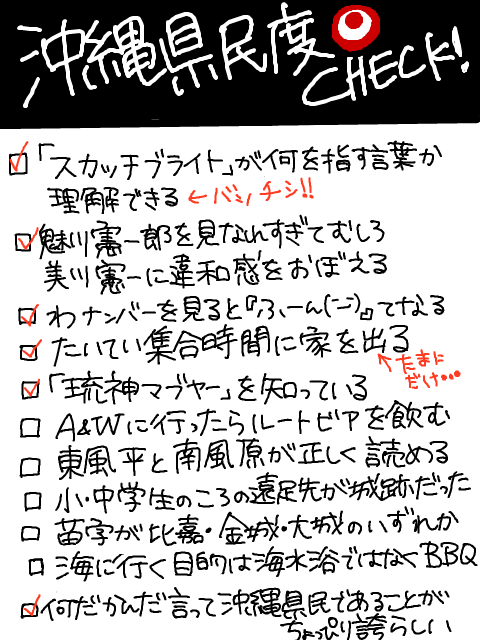 沖縄県民度
CHECK!
「スカッチブライト」が何を指す言葉か
理解できる ←バシノチシ!!
魅川憲一郎を見なれすぎてむしろ
美川憲一に違和感をおぼえる
わナンバーを見ると『ふーん(ﾆｰﾆ)』てなる
たいてい集合時間に家を出る
←たまに
だけ…
「琉神マブヤー」を知っている
A&Wに行ったらルートビアを飲む
東風平と南風原が正しく読める
小・中学生のころの遠足先が城跡だった
苗字が比嘉・金城・大城のいずれか
海に行く目的は海水浴ではなくBBQ
何だかんだ言って沖縄県民であることが
ちょっぴり誇らしい